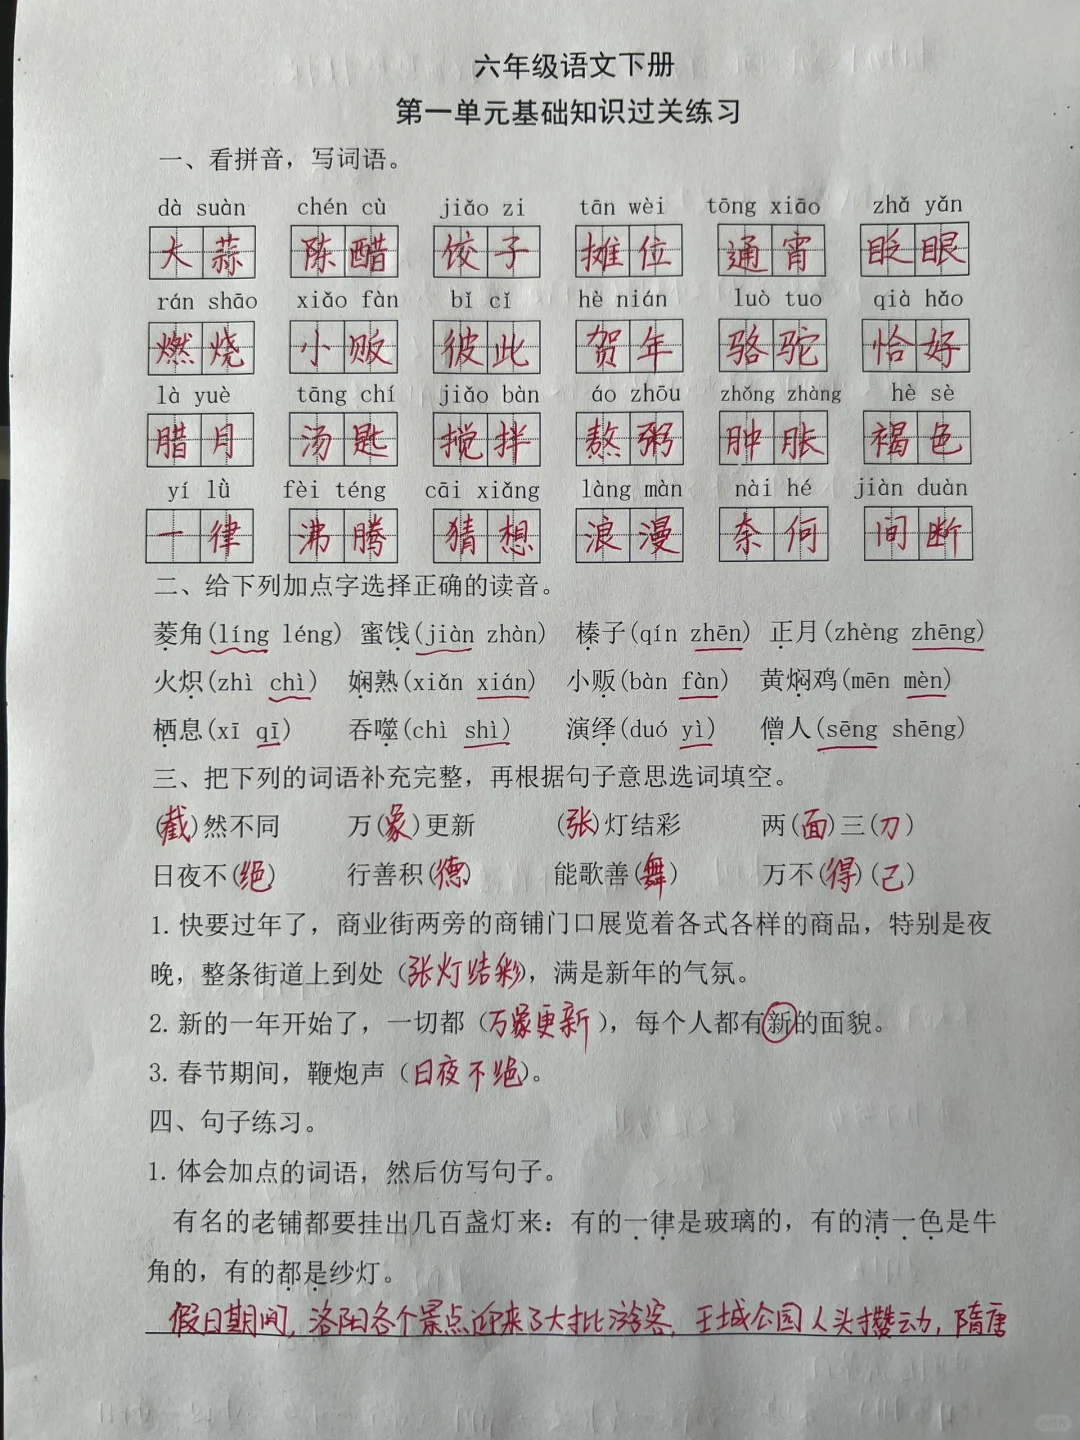 六年级语文下册
第一单元基础知识过关练习
一、看拼音，写词语。
dà suàn chén cù jiǎo zi tān wèi tōng xiāo zhǎ yǎn
大蒜 陈醋 饺子 摊位 通宵 眨眼
rán shāo xiǎo fàn bǐ cǐ hè nián luò tuo qià hǎo
燃烧 小贩 彼此 贺年 骆驼 恰好
là yuè tāng chí jiǎo bàn áo zhōu zhǒng zhàng hè sè
腊月 汤匙 搅拌 熬粥 肿胀 褐色
yí lǜ fèi téng cāi xiǎng làng màn nài hé jiàn duàn
一律 沸腾 猜想 浪漫 奈何 间断
二、给下列加点字选择正确的读音。
菱角(líng léng) 蜜饯(jiàn zhàn) 榛子(qín zhēn) 正月(zhèng zhēng)
火炽(zhì chì) 娴熟(xiǎn xián) 小贩(bàn fàn) 黄焖鸡(mēn mèn)
栖息(xī qī) 吞噬(chì shì) 演绎(duó yì) 僧人(sēng shēng)
三、把下列的词语补充完整，再根据句子意思选词填空。
(截)然不同 万(象)更新 (张)灯结彩 两(面)三(刀)
日夜不(绝) 行善积(德) 能歌善(舞) 万不(得)(已)
1. 快要过年了，商业街两旁的商铺门口展览着各式各样的商品，特别是夜
晚，整条街道上到处（张灯结彩），满是新年的气氛。
2. 新的一年开始了，一切都（万象更新），每个人都有新的面貌。
3. 春节期间，鞭炮声（日夜不绝）。
四、句子练习。
1. 体会加点的词语，然后仿写句子。
有名的老铺都要挂出几百盏灯来：有的一律是玻璃的，有的清一色是牛
角的，有的都是纱灯。
假日期间，洛阳各个景点迎来了大批游客，王城公园人头攒动，隋唐